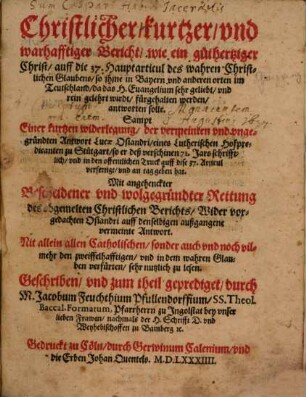 Christlicher/kurtzer/vnd
warhafftiger Bericht/wie ein guthertziger
Christ/auff die 37. Hauptarticul des wahren Christ-
lichen Glaubens/so ihme in Bayern vnd anderen orten im
Teutschland/da das H. Euangelium sehr geliebt/ vnd
rein gelehrt wirdt/ fürgehalten werden/
antworten solle.
Sampt
Einer kurtzen widerlegung/ der vermeinten vnd vnge-
gründten Antwort Lucæ Osiandri/eines Lutherischen Hofpre-
dicanten zu Stütgart/so er des verschinen 72. Jars schrifft-
lich/ vnd in den offentlichen Truck auff dise 37. Articul
verfertigt/ vnd an tag geben hat.
Mit angehenckter
Bescheidener vnd wolgegründter Rettung
des obgemelten Christlichen Berichts/ Wider vor-
gedachten Osiandri auff denselbigen außgangene
vermeinte Antwort.
Nit allein allen Catholischen/ sonder auch vnd noch vil-
mehr den zweiffelhafftigen/ vnd in dem wahren Glau-
ben verfürten/ sehr nutzlich zu lesen.
Geschriben/ vnd zum theil geprediget/ durch
M. Jacobum Feuchthium Pfullendorffium/ SS. Theol.
Baccal. Formatum, Pfarrherrn zu Ingolstat bey vnser
lieben Frawen/ nachmals der H. Schrifft D. vnd
Weyhebischoffen zu Bamberg ꝛc.
Gedruckt zu Cöln/durch Gerwinum Calenium/vnd
die Erben Johan Quentels. M.D.LXXXIIII.